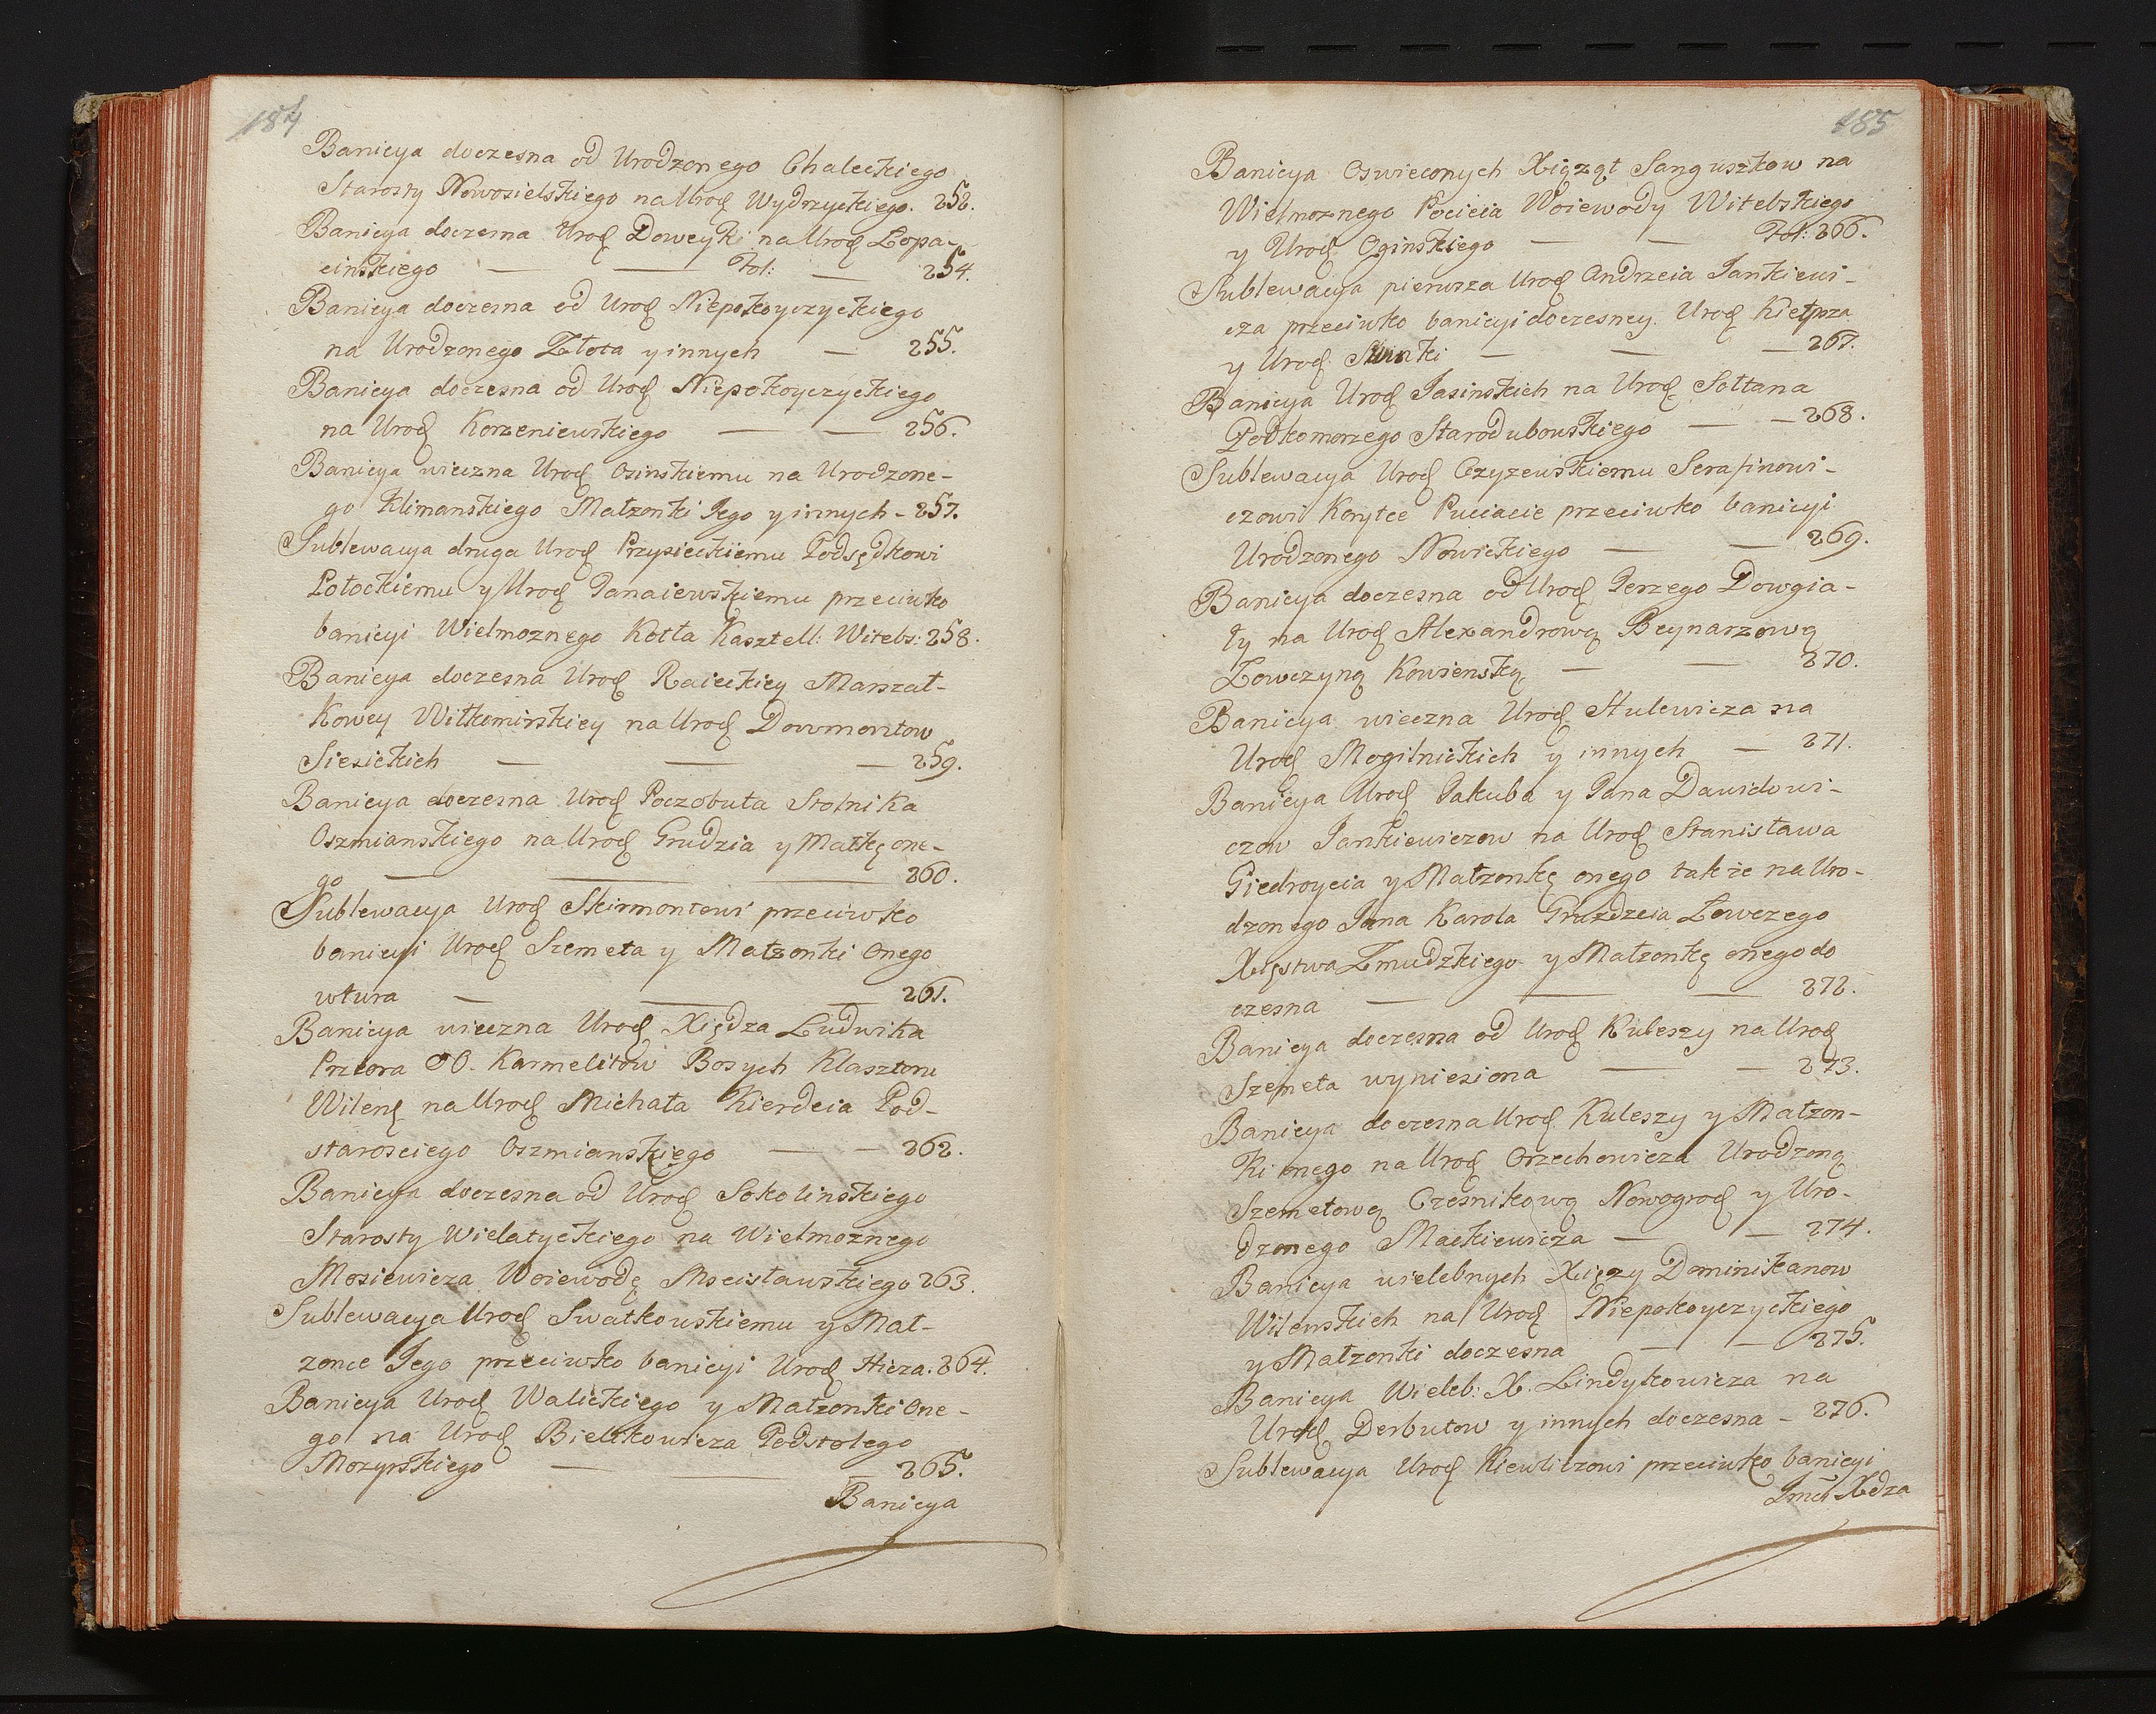 184
Banicya doczesna od Urodzonego Chaleckiego
Starosty Nowosielskiego na Urod Wydrzyckiego. 252.
Banicya doczesna Urod Doweyki na Urod Łopa-
cinskiego — — Fol: — 254.
Banicya doczesna od Urod Niepokoyczyckiego
na Urodzonego Złota y innych — 255.
Banicya doczesna od Urod Niepokoyczyckiego
na Urod Korzeniewskiego — — 256.
Banicya wieczna Urod Osinskiemu na Urodzone-
go Klimanskiego Małzonki Jego y innych - 257.
Sublewacya druga Urod Przysieckiemu Podsędkowi
Połockiemu y Urod Janaiewskiemu przeciwko
banicyi Wielmoznego Kotła Kasztell: Witebs: 258.
Banicya doczesna Urod Raieckiey Marszał-
kowey Wiłkomirskiey na Urod Dowmontow
Siesickich — — — 259.
Banicya doczesna Urod Poczobuta Stolnika
Oszmianskiego na Urod Grudzia y Matkę one-
go — — — 260.
Sublewacya Urod Skirmontowi przeciwko
banicyi Urod Szemeta y Małzonki Onego
wtura — — — 261.
Banicya wieczna Urod Xiędza Ludwika
Przeora OO. Karmelitow Bosych Klasztoru
Wilen na Urod Michała Kierdeia Pod-
starosciego Oszmianskiego — — 262.
Banicya doczesna od Urod Sokolinskiego
Starosty Wielatyckiego na Wielmoznego
Mosiewicza Woiewodę Mscisławskiego 263.
Sublewacya Urod Swatkowskiemu y Mał-
zonce Jego przeciwko banicyi Urod Hicza. 264.
Banicya Urod Walickiego y Małzonki One-
go na Urod Bielikowicza Podstolego
Mozyrskiego — — — 265.
Banicya
185
Banicya Oswieconych Xiąząt Sanguszkow na
Wielmoznego Pocieia Woiewody Witebskiego
y Urod Oginskiego — — Fol: 266.
Sublewacya pierwsza Urod Andrzeia Jankiewi-
cza przeciwko banicyi doczesney Urod Kiełpsza
y Urod — — — 267.
Banicya Urod Jasinskich na Urod Sołtana
Podkomorzego Starodubowskiego — — 268.
Sublewacya Urod Czyzewskiemu Serafinowi-
czowi Korytce Puciacie przeciwko banicyi
Urodzonego Nowickiego — — 269.
Banicya doczesna od Urod Jerzego Dowgia-
ły na Urod Alexandrową Beynarzową
Łowczyną Kowienską — — 270.
Banicya wieczna Urod Hulewicza na
Urod Mogilnickich y innych — 271.
Banicya Urod Jakuba y Jana Dawidowi-
czow Jankiewiczow na Urod Stanisława
Giedroycia y Małzonkę onego także na Uro-
dzonego Jana Karola Gruzdzeia Łowczego
Xięstwa Zmudzkiego y Małzonkę onego do
czesna — — — 272.
Banicya doczesna od Urod Kuleszy na Urod
Szemeta wyniesiona — — 273.
Banicya doczesna Urod Kuleszy y Małzon-
ki onego na Urod Orzechowicza Urodzoną
Szemetową Czesnikową Nowogrod y Uro-
dzonego Mackiewicza — — 274.
Banicya wielebnych Xięzy Dominikanow
Wilenskich na Urod Niepokoyczyckiego
y Małzonki doczesna — — 275.
Banicya Wieleb: X. Lindykowicza na
Urod Derbutow y innych doczesna - 276.
Sublewacya Urod Kiewliczowi przeciwko banicyi
Jmci Xdza